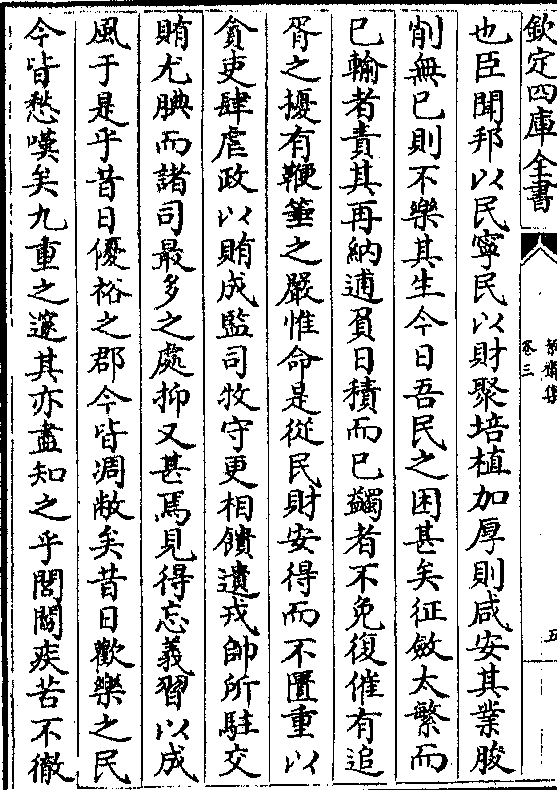 欽定四庫全書
卷三
五
也臣聞邦以民寧民以財聚培植加厚則咸安其業朘
削無已則不樂其生今日吾民之困甚矣征斂太繁而
已輸者責其再納逋負日積而已蠲者不免復催有追
胥之擾有鞭箠之嚴惟命是從民財安得而不匱重以
貪吏肆虐政以賄成監司牧守更相饋遺戎帥所駐交
賄尤腆而諸司最多之處抑又甚焉見得忘義習以成
風于是乎昔日優裕之郡今皆凋敝矣昔日歡樂之民
今皆愁嘆矣九重之邃其亦盡知之乎閭閻疾苦不徹